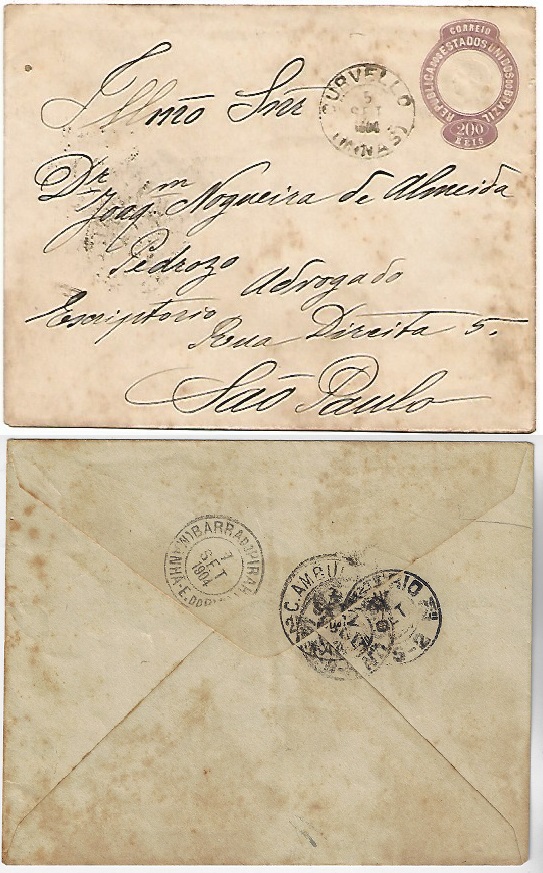 CORREIO
REPUBLICA DOS ESTADOS UNIDOS DO BRAZIL
200
REIS
CURVELLO
5
SET
(MINAS)
Illmo Snr
Dr
Joaqm Nogueira de Almeida
Pedrozo
Advogado
Escriptorio Rua Direita 5.
São Paulo
BARRA DO PIRAHY
7
SET
1904
C. AMBUL